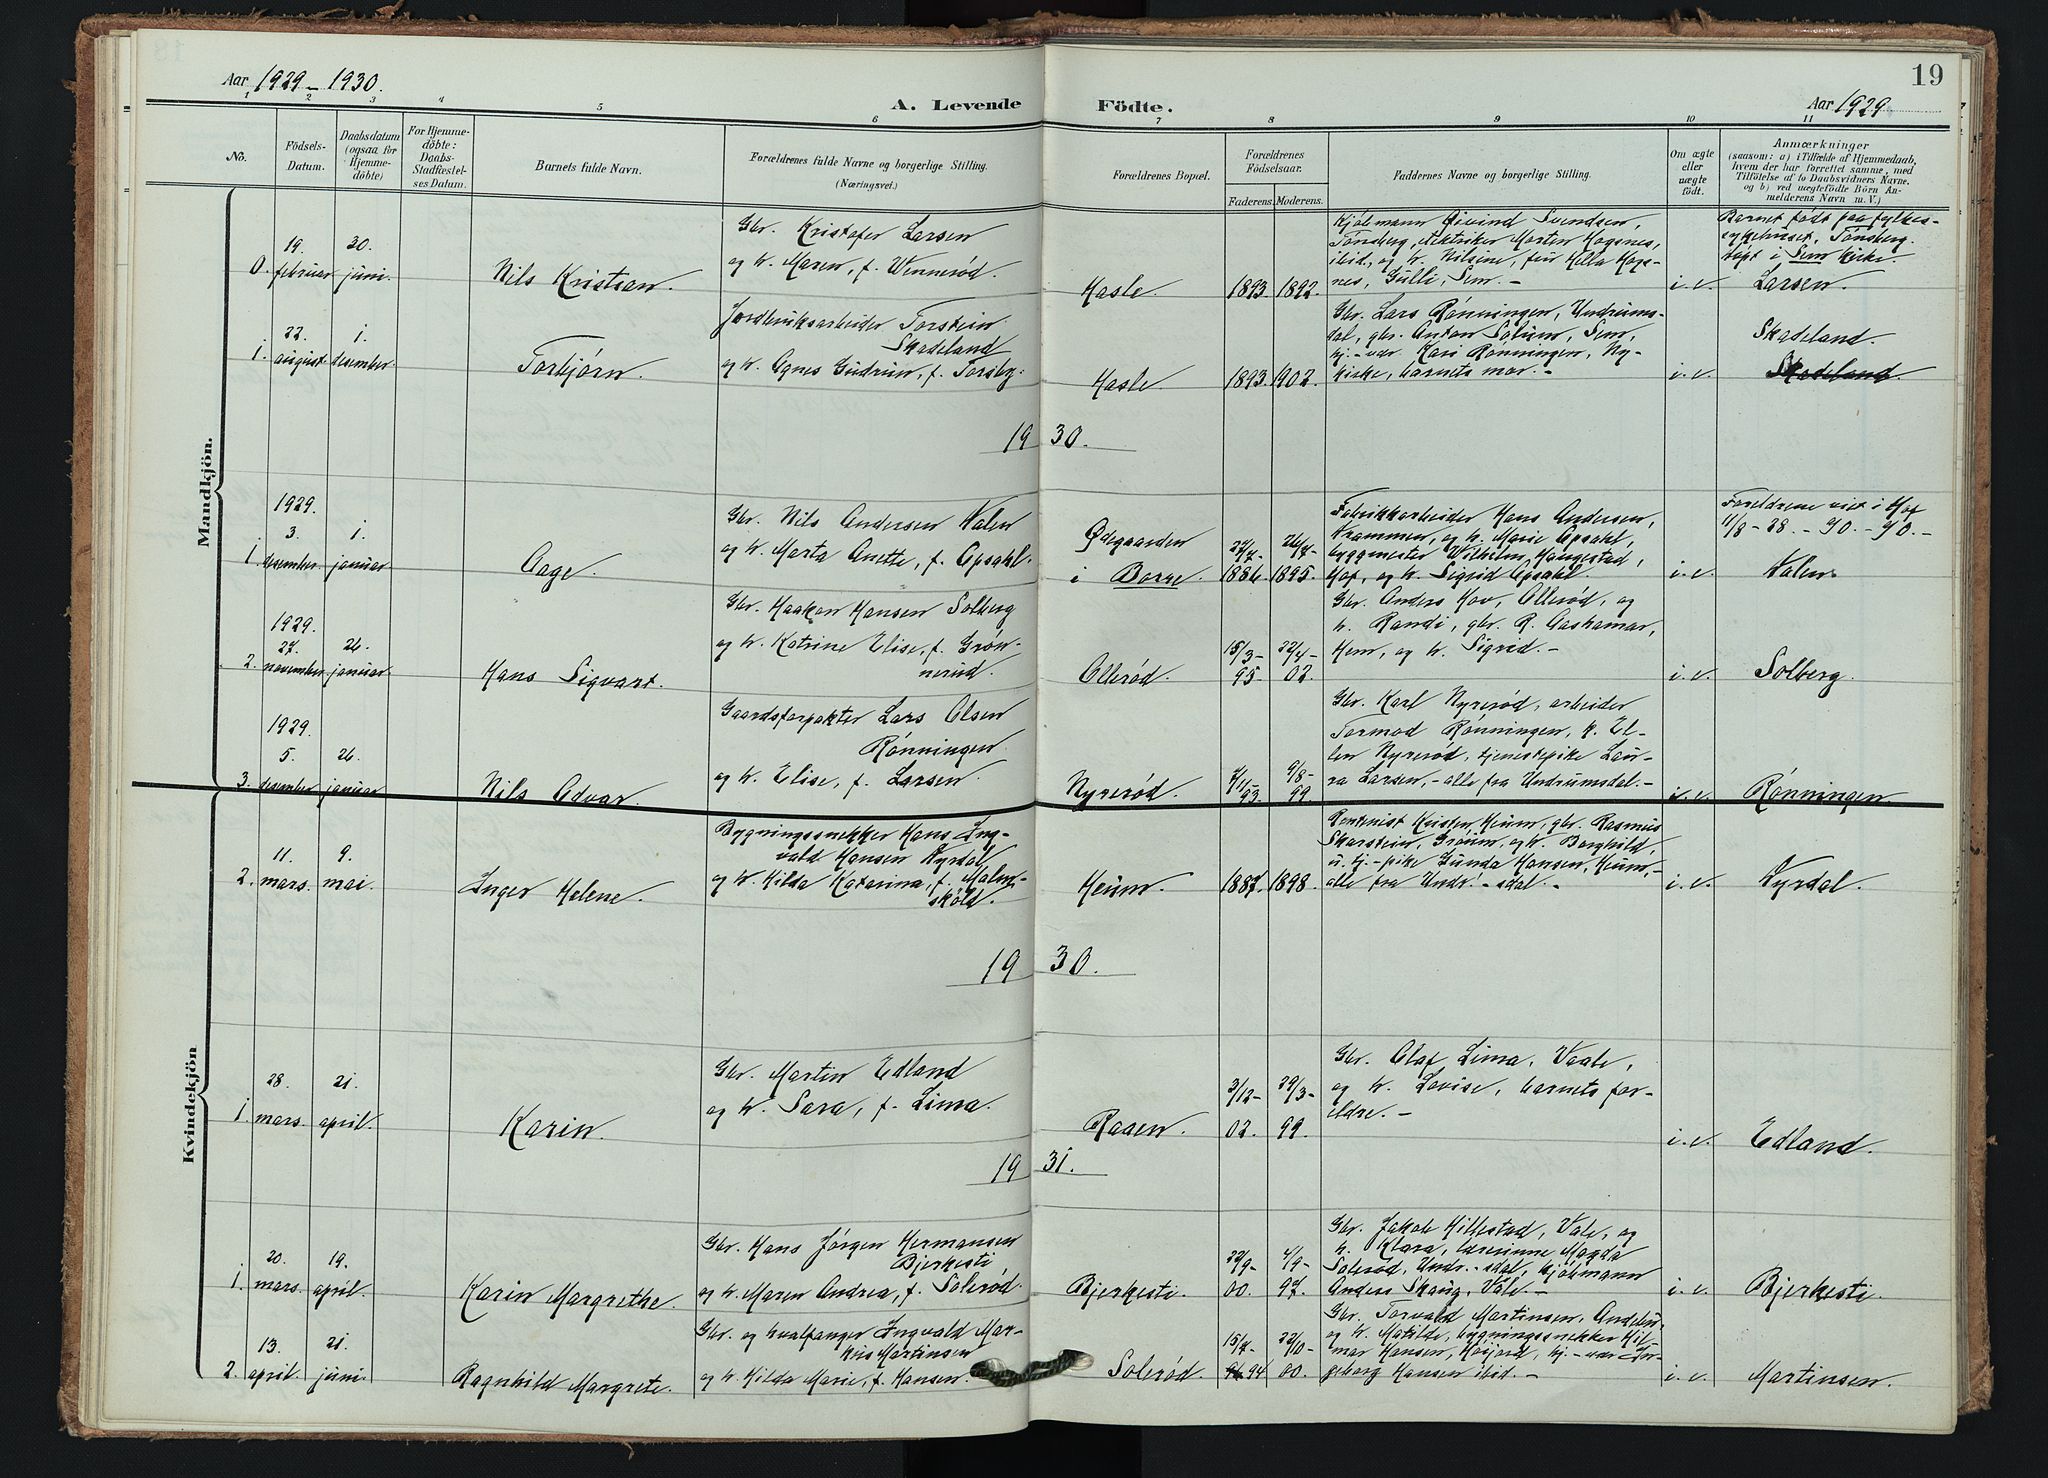 19
Aar 1929 - 1930.
A. Levende Födte.
Aar 1929
1 2 3 4 5 6 7 8 9 10 11
No.
Födsels-
Datum.
Daabsdatum
(ogsaa for
Hjemme-
döbte)
For Hjemme-
döbte:
Daabs-
Stadfæstel-
ses Datum.
Barnets fulde Navn.
Forældrenes fulde Navne og borgerlige Stilling.
(Næringsvei.)
Forældrenes Bopæl.
Forældrenes
Födselsaar.
Faderens. Moderens.
Faddernes Navne og borgerlige Stilling.
Om ægte
eller
uægte
født.
Anmærkninger
(saasom: a) i Tilfælde af Hjemmedaab,
hvem der har forrettet samme, med
Tilföielse af to Daabsvidners Navne.
og b) ved uægtefödte Börn An-
melderens Navn m. V.)
Mandkjön.
0.
19.
februar
30.
juni.
Nils Kristian.
Gbr. Kristofer Larsen
og h. Maren, f. Wennerød.
Hasle.
1893. 1892.
Kjøbmann Øivind Svendsen,
Tønsberg, elektriker Morten Hogsnes,
ibid., og h. Nilsine, fru Hella Hogs-
nes, Gulli, Sem. -
i. e.
Barnet født paa fylkes-
sykehuset, Tønsberg.
døpt i Sem kirke.
Larsen.
1.
22.
august.
1.
desember.
Torbjørn.
Jordbruksarbeider Torstein
Skadeland
og h. Agnes Gudrun, f. Torsby.
Hasle.
1893. 1902.
Gbr. Lars Rønningen, Undrums-
dal, gbr. Anton Solum, Sem,
hj.-vær. Kari Rønningen, Ny-
kirke, barnets mor. -
i. e.
Skadeland.
Skadeland.
1930.
1.
1929.
3.
desember
1.
januar
Aage.
Gbr. Nils Andersen Valen
og h. Marta Anette, f. Opsahl.
Ødegaarden
i Borre.
22/7-
1886
26/7-
1895.
Fabrikkarbeider Hans Andersen,
Krammen, og h. Marie Opsahl,
byggmester Wilhelm Haugestad,
Hof, og h. Sigrid Opsahl.
i. e.
Foreldrene viet i Hof
11/8 - 28. -
Valen.
2.
1929.
27.
november
26.
januar
Hans Sigvart.
Gbr. Haakon Hansen Solberg
og h. Katrine Elise, f. Grøn-
nerud.
Ollerød.
15/3-
95.
22/4-
02.
Gbr. Anders Hov, Ollerød, og
h. Randi, gbr. R. Aashamar,
Hem, og h. Sigrid. -
i. e.
Solberg.
3.
1929.
5.
desember
26.
januar
Nils Edvar.
Gaardsforpakter Lars Olsen
Rønningen
og h. Elise, f. Larsen.
Nyrerød.
93.
9/8-
99.
Gbr. Karl Nyrerød, arbeider
Tormod Rønningen, h. El-
len Nyrerød, tjenestepike Lau-
ra Larsen, - alle fra Undrumsdal. -
i. e.
Rønningen.
Kvindekjön
2.
11.
mars.
9.
mai.
Inger Helene.
Bygningssnekker Hans Ing-
vald Hansen Vyrdal
og h. Hilda Katarina, f. Malm-
sköld.
Heum.
1887. 1898.
Rentenist Kristen Heum, gbr. Rasmus
Skarstein, Grøum, og h. Borghild,
u. hj.-pike Gunda Hansen, Heum, -
alle fra Undr.-sdal. -
i. e.
Vyrdal.
1930.
1.
28.
mars.
21.
april.
Karin.
Gbr. Martin Edland
og h. Sara, f. Lima.
Raaen.
3/12-
02.
29/3-
99.
Gbr. Olaf Lima, Vaale,
og h. Lovise, barnets for-
eldre. -
i. e.
Edland.
1931.
1.
20.
mars.
19.
april.
Karin Margrethe.
Gbr. Hans Jørgen Hermansen
Bjerkesti
og h. Maren Andrea, f. Solerød.
Bjerkesti.
22/9-
00.
4/9-
97.
Gbr. Jakob Hillestad, Vale, og
h. Klara, lærerinne Magda
Solerød, Undr.-sdal, kjøbmann
Anders Skaug, Vale. -
i. e.
Bjerkesti.
2.
13.
april.
21.
juni.
Ragnhild Margrete.
Gbr. og hvalfanger Ingvald Mar-
kus Martinsen
og h. Hilda Marie, f. Hansen.
Solerød.
15/7-
94
22/10-
00.
Gbr. Torvald Martinsen, Andebu,
og h. Matilde, bygningssnekker Hil-
mar Hansen, Høijord, hj.-vær. In-
geborg Hansen ibid. -
i. e.
Martinsen.